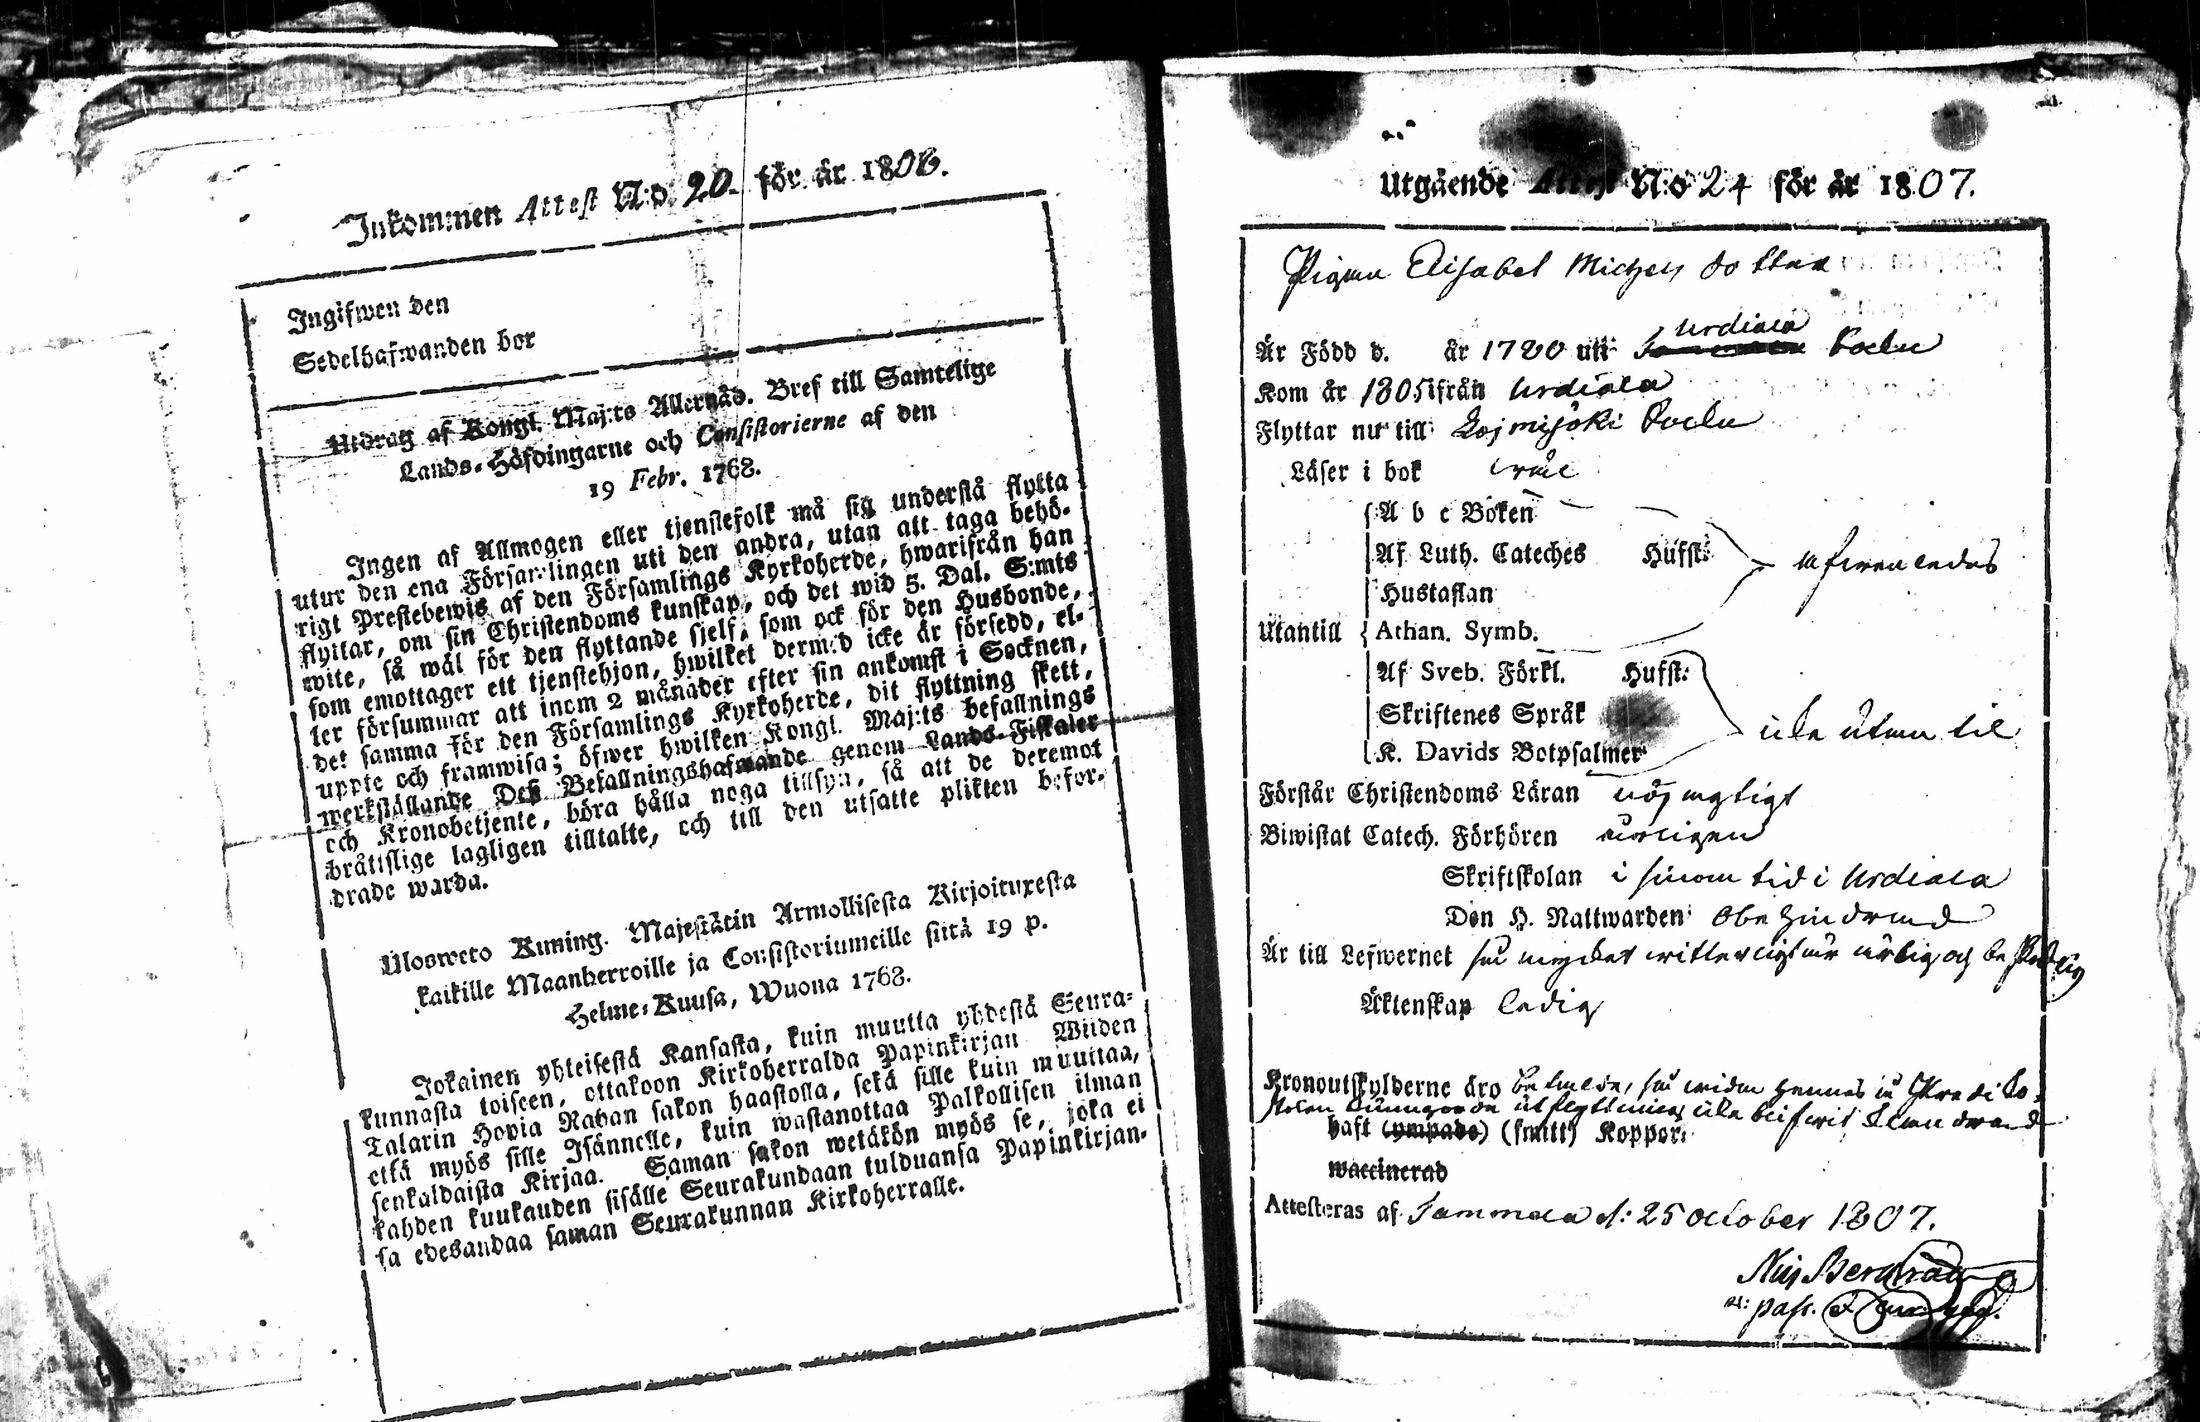 Inkommen Attest N:o 20. för år 1806.
Ingifwen den
Sedelhafwanden bor
Utdrag af Kongl. Maj:ts Allernåd. Bref till Samtelige
Lands-Höfdingarne och Consistorierne af den
19 Febr. 1768.
Ingen af Allmogen eller tjenstefolk må sig understå flytta
utur den ena Församlingen uti den andra, utan att taga behö-
rigt Prestebewis af den Församlings Kyrkoherde, hwarifrån han
flyttar, om sin Christendoms kunskap, och det wid 5. Dal. S:mts
wite, så wäl för den flyttande sjelf, som ock för den Husbonde,
som emottager ett tjenstehjon, hwilket dermed icke är försedd, el-
ler försummar att inom 2 månader efter sin ankomst i Socknen,
det samma för den Församlings Kyrkoherde, dit flyttning skett,
uppte och framwisa; öfwer hwilken Kongl. Maj:ts befallnings
werkställande Deß Befallningshafwande genom Lands-Fiskaler
och Kronobetjente, böra hålla noga tillsyn, så att de deremot
bråttslige lagligen tilltalte, och till den utsatte plikten befor-
drade warda.
Ulosweto Kuning. Majestätin Armollisesta Kirjoituxesta
kaikille Maanherroille ja Consistoriumeille siitä 19 p.
Helme-Kuusa, Wuona 1768.
Jokainen yhteisestä Kansasta, kuin muutta yhdestä Seura-
kunnasta toiseen, ottakoon Kirkoherralda Papinkirjan Wiiden
Talarin Hopia Rahan sakon haastolla, sekä sille kuin muuttaa,
että myös sille Isännelle, kuin wastanottaa Palkollisen ilman
senkaldaista Kirjaa. Saman sakon wetäkön myös se, joka ei
kahden kuukauden sisälle Seurakundaan tulduansa Papinkirjan-
sa edesandaa saman Seurakunnan Kirkoherralle.
Utgående Attest N:o 24 för år 1807.
Pigan Elisabet Michels dotter
Urdiala
Är Född d. år 1780 uti Sockn
Kom år 1805 ifrån Urdiala
Flyttar nu till Loimijoki Sockn
Läser i bok
A b c Boken
Af Luth. Cateches Hufst:
Hustaflan
Utantill Athan. Symb.
Af Sveb. Förkl. Hufst:
Skriftenes Språk
K. Davids Botpsalmer
Förstår Christendoms Läran nöjagtigt
Biwistat Catech. Förhören årligen
Skriftskolan i sinom tid i Urdiala
Den H. Nattwarden obehindrad
Är till Lefwernet så mycket witterligt är ärlig och beskedlig
Äktenskap ledig
Kronoutskylderne äro betalde, så widan hennes
haft (ympade) (smitt) Koppor.
waccinerad
Attesteras af Tammela d: 25 October 1807.